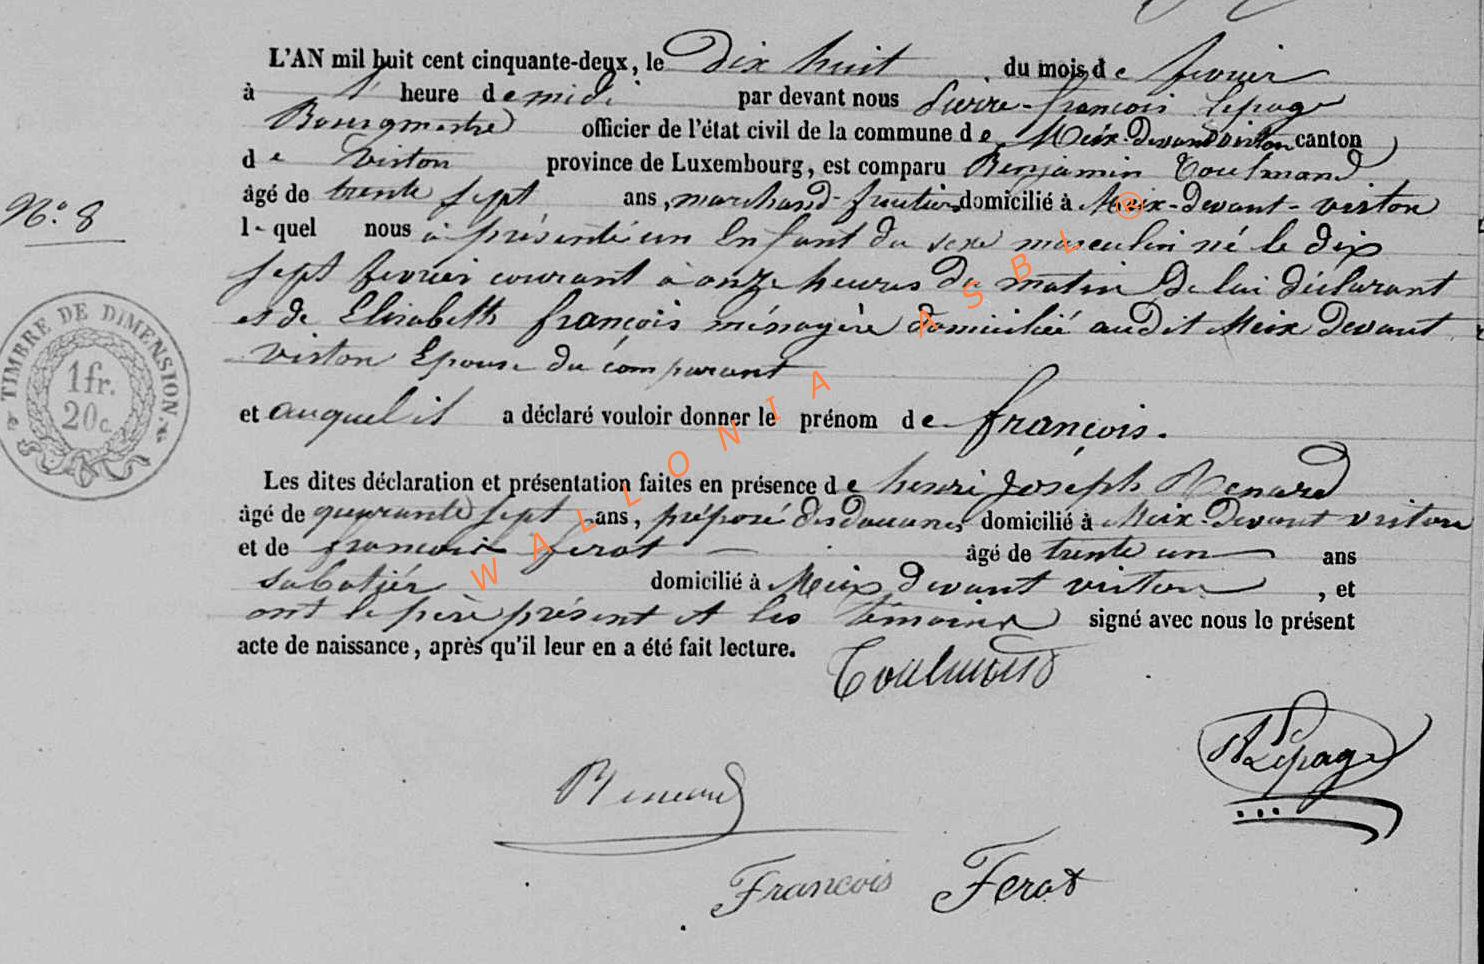 L'AN mil huit cent cinquante-deux, le Dix huit du mois de fevrier
à 1 heure de midi par devant nous Pierre-françois Lepage
Bourgmestre officier de l'état civil de la commune de Meix-Devant virton canton
de Virton province de Luxembourg, est comparu Benjamin Toulmond
âgé de trente sept ans, marchand-fruitier domicilié à Meix-devant-virton
N.° 8
l- quel nous a présenté un Enfant du sexe masculin né le dix
sept fevrier courant à onze heures du matin De lui déclarant
et de Elisabeth françois ménagère domiciliée audit Meix Devant
virton Epouse du comparant
TIMBRE DE DIMENSION
1 fr.
20 c.
et auquel il a déclaré vouloir donner le prénom de françois.
Les dites déclaration et présentation faites en présence de henri Joséph Renard
âgé de quarante sept ans, préposé des douanes, domicilié à Meix-Devant virton
et de francois ferot âgé de trente un ans
sabotier domicilié à Meix devant virton, et
ont le père présent et les témoins signé avec nous le présent
acte de naissance, après qu'il leur en a été fait lecture.
Toulmond
Lepage
Renard
Francois Ferot
WALLONIA ASBL ®